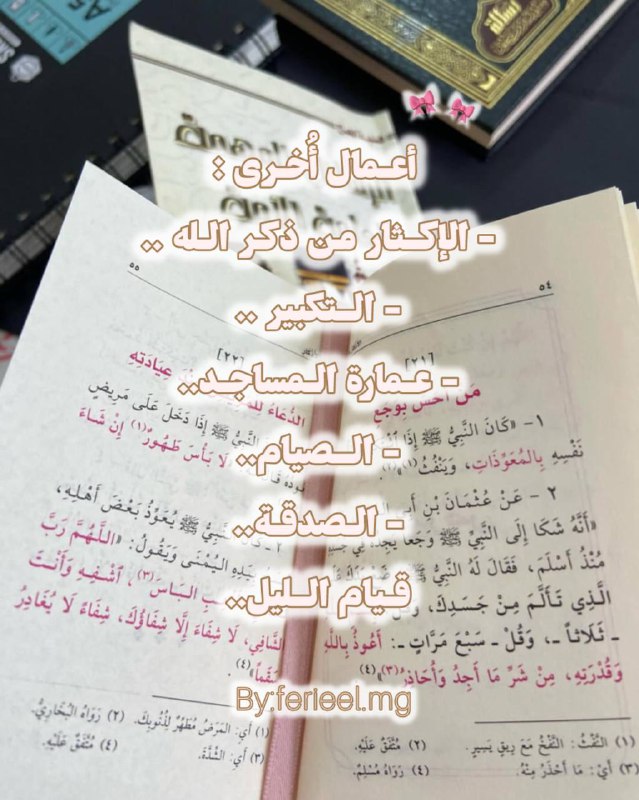 أعمال أُخرى :
- الإكثار من ذكر الله ..
- التكبير ..
- عمارة المساجد..
- الصيام..
- الصدقة..
قيام الليل..
By:ferieel.mg
رسالة
A5
٥٤
[٢١]
مَنْ أَحَسَّ بِوَجَعٍ
١- «كَانَ النَّبِيُّ ﷺ إِذَا
نَفْسِهِ بِالْمُعَوِّذَاتِ، وَيَنْفُثُ(١)»
٢ - عَنْ عُثْمَانَ بْنِ أَبِي
«أَنَّهُ شَكَا إِلَى النَّبِيِّ ﷺ وَجَعاً يَجِدُهُ فِي جَسَدِهِ
مُنْذُ أَسْلَمَ، فَقَالَ لَهُ النَّبِيُّ ﷺ
الَّذِي تَأَلَّمَ مِنْ جَسَدِكَ،
- ثَلَاثاً -، وَقُلْ - سَبْعَ مَرَّاتٍ -: أَعُوذُ بِاللَّهِ
وَقُدْرَتِهِ، مِنْ شَرِّ مَا أَجِدُ وَأُحَاذِرُ(٣)»(٤)
(١) النَّفْثُ: النَّفْخُ مَعَ رِيقٍ يَسِيرٍ. (٢) مُتَّفَقٌ عَلَيْهِ.
(٣) أَيْ: مَا أَحْذَرُ مِنْهُ. (٤) رَوَاهُ مُسْلِمٌ.
٥٥
[٢٢]
الدُّعَاءُ عِيَادَتِهِ
النَّبِيُّ ﷺ إِذَا دَخَلَ عَلَى مَرِيضٍ
لَا بَأْسَ طَهُورٌ(١) إِنْ شَاءَ
النَّبِيُّ ﷺ يُعَوِّذُ بَعْضَ أَهْلِهِ،
بِيَدِهِ الْيُمْنَى وَيَقُولُ: «اللَّهُمَّ رَبَّ
الْبَاسَ(٣)، اشْفِهِ وَأَنْتَ
الشَّافِي، لَا شِفَاءَ إِلَّا شِفَاؤُكَ، شِفَاءً لَا يُغَادِرُ
سَقَماً»(٤).
(١) أَيْ: الْمَرَضُ مُطَهِّرٌ لِذُنُوبِكَ. (٢) رَوَاهُ الْبُخَارِيُّ.
(٣) أَيْ: الشِّدَّةُ. (٤) مُتَّفَقٌ عَلَيْهِ.